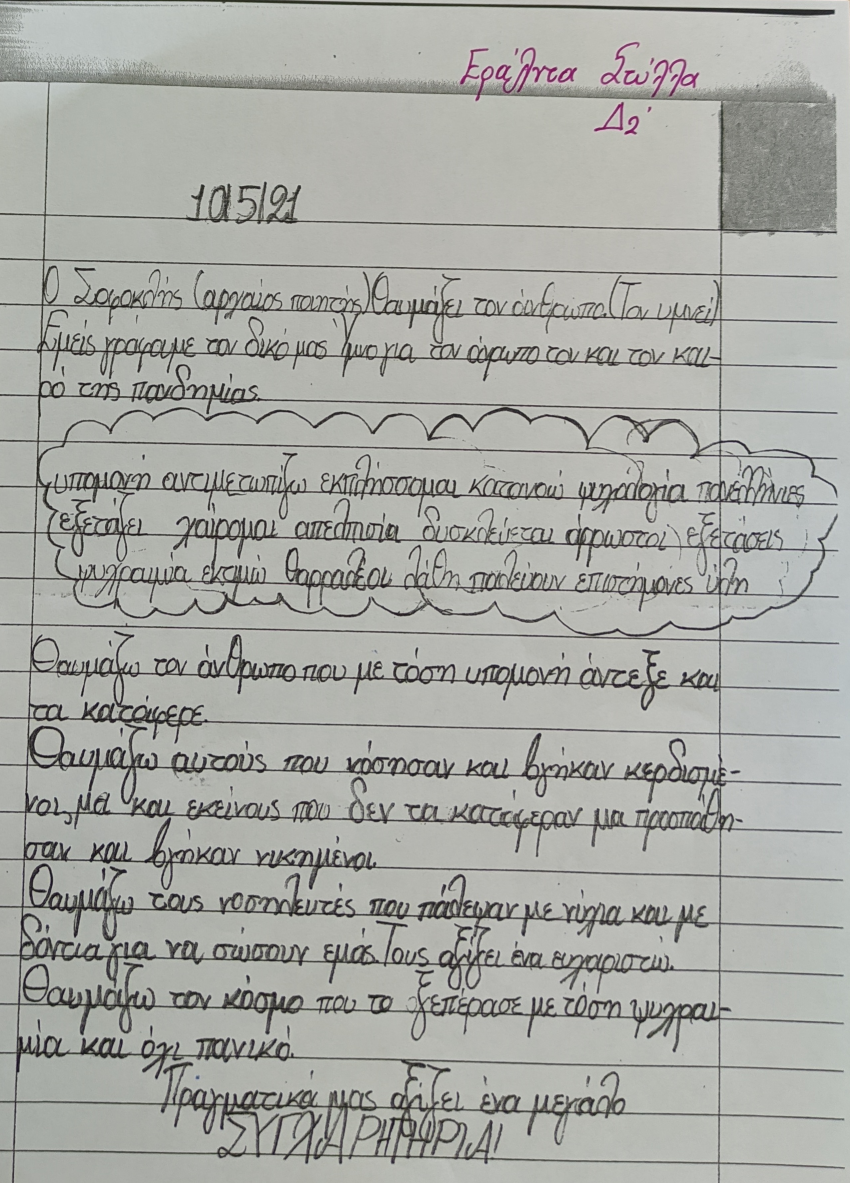 Εράλντα Στύλλα
Δ2'
10/5/21
Ο Σοφοκλής (αρχαίος ποιητής) θαυμάζει τον άνθρωπο (Τον υμνεί)
Εμείς γράφαμε τον δικό μας Ύμνο για τον και τον και-
ρό της πανδημίας.
υπομονή αντιμετωπίζω εκπλήσσομαι κατανοώ ψυχολογία πανέλλήνιες
εξετάζει χαίρομαι απελπισία άρρωστοι εξετάσεις
ψυχραιμία εκτιμώ θαρραλέοι λάθη παλεύουν επιστήμονες ύλη
Θαυμάζω τον άνθρωπο που με τόση υπομονή άντεξε και
τα κατάφερε.
Θαυμάζω αυτούς που νόσησαν και βγήκαν κερδισμέ-
νοι, μα και εκείνους που δεν τα κατάφεραν μα προσπάθη-
σαν και βγήκαν νικημένοι.
Θαυμάζω τους νοσηλευτές που πάλεψαν με νύχια και με
δόντια για να σώσουν εμάς. Τους αξίζει ένα ευχαριστώ.
Θαυμάζω τον κόσμο που το ξεπέρασε με τόση ψυχραι-
μία και όχι πανικό.
Πραγματικά μας αξίζει ένα μεγάλο